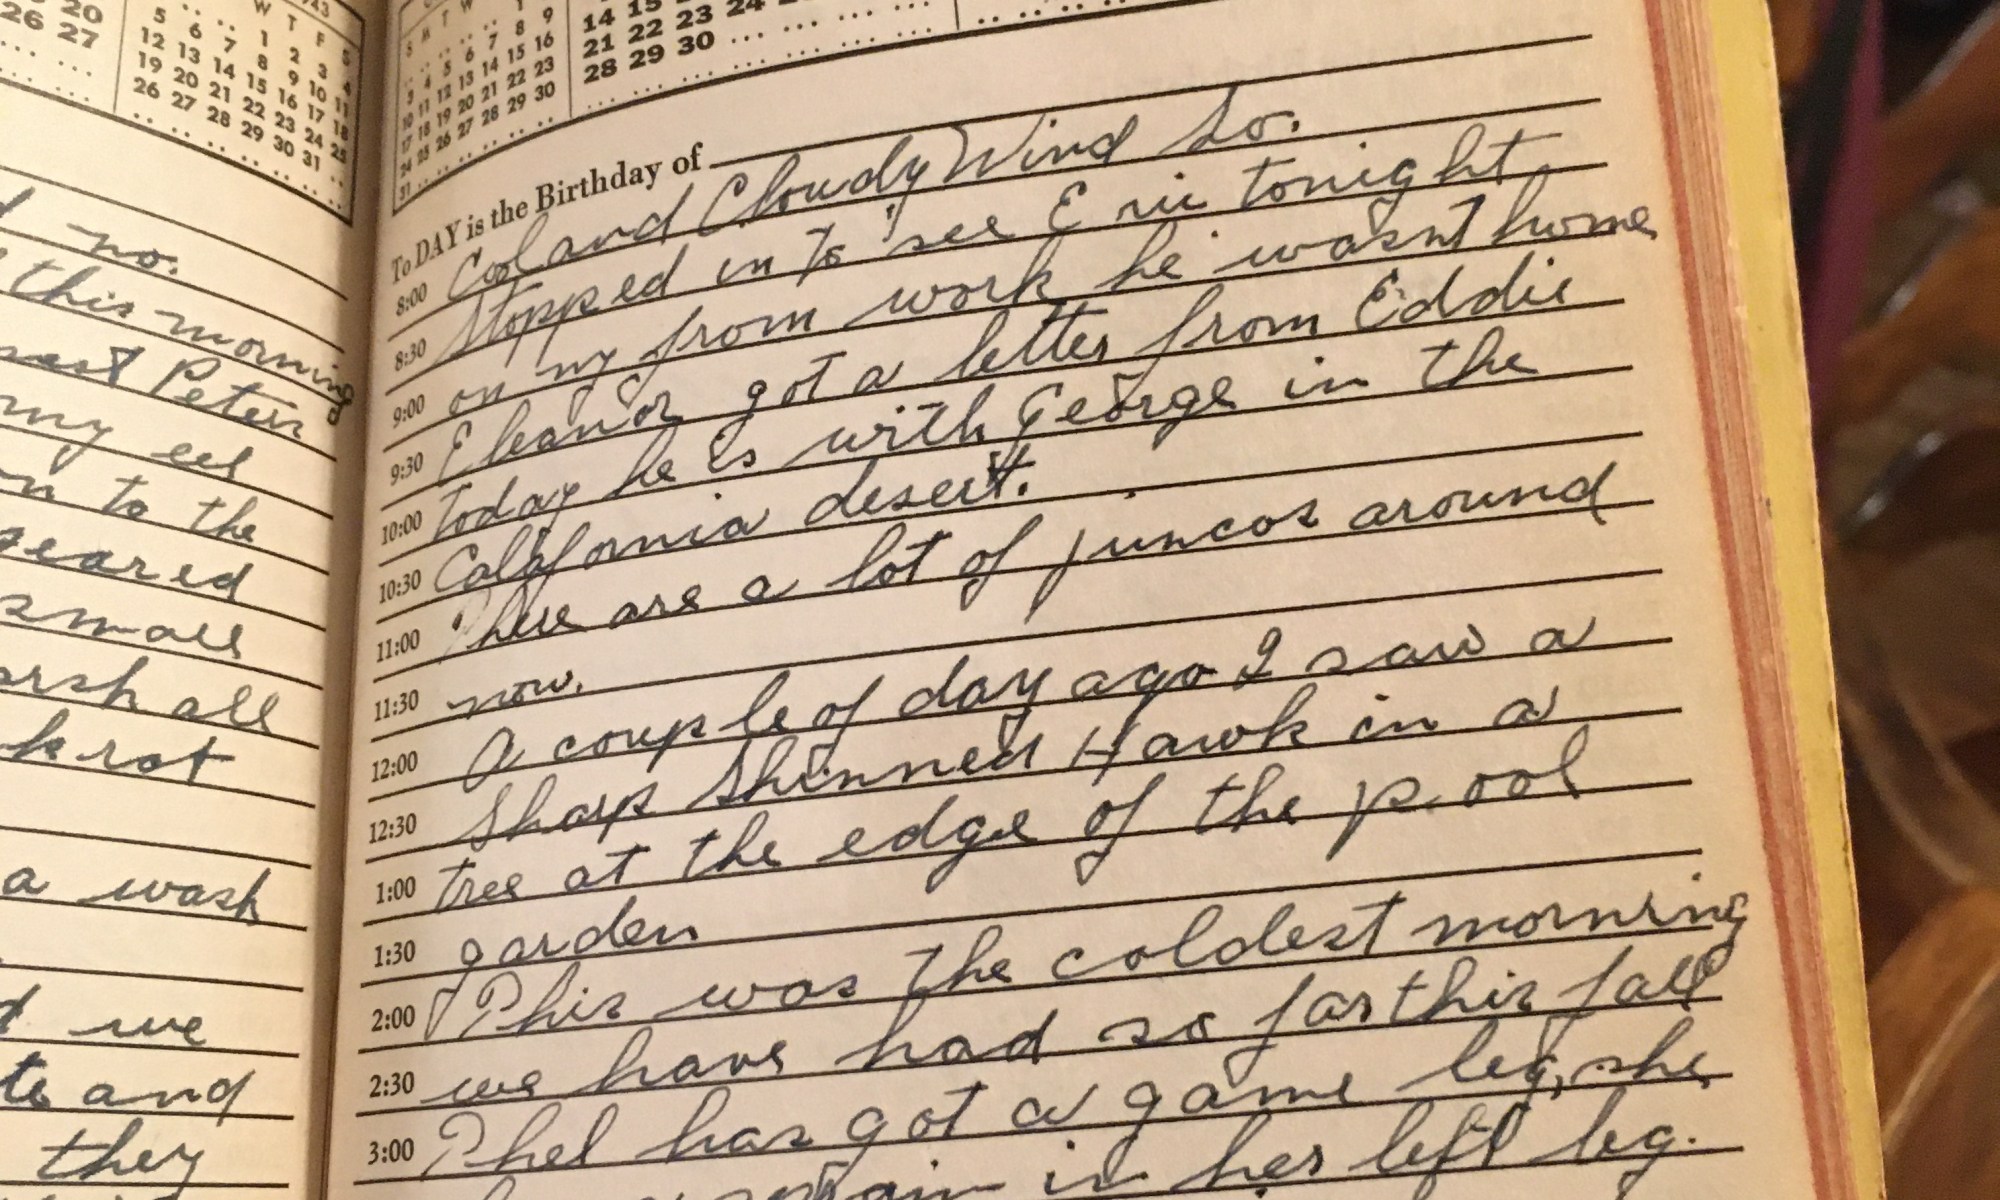 20
26 27
W T F S
1 2 3 4
5 6 7 8 9 10 11
12 13 14 15 16 17 18
19 20 21 22 23 24 25
26 27 28 29 30 31
no.
this morning
Peter
my eel
to the
small
a wash
we
and
they
S M T W
1 2
3 4 5 6 7 8 9
10 11 12 13 14 15 16
17 18 19 20 21 22 23
24 25 26 27 28 29 30
31
14 15
21 22 23 24
28 29 30
To DAY is the Birthday of
8:00 Cool and Cloudy Wind So.
8:30 Stopped in to see Eric tonight
9:00 on my from work he wasnt home
9:30 Eleanor got a letter from Eddie
10:00 today he is with George in the
10:30 California desert.
11:00 There are a lot of juncos around
11:30 now.
12:00 A couple of day ago I saw a
12:30 Sharp Shinned Hawk in a
1:00 tree at the edge of the pool
1:30 garden
2:00 This was the coldest morning
2:30 we have had so far this fall
3:00 Phel has got a game leg, she
in her left leg.